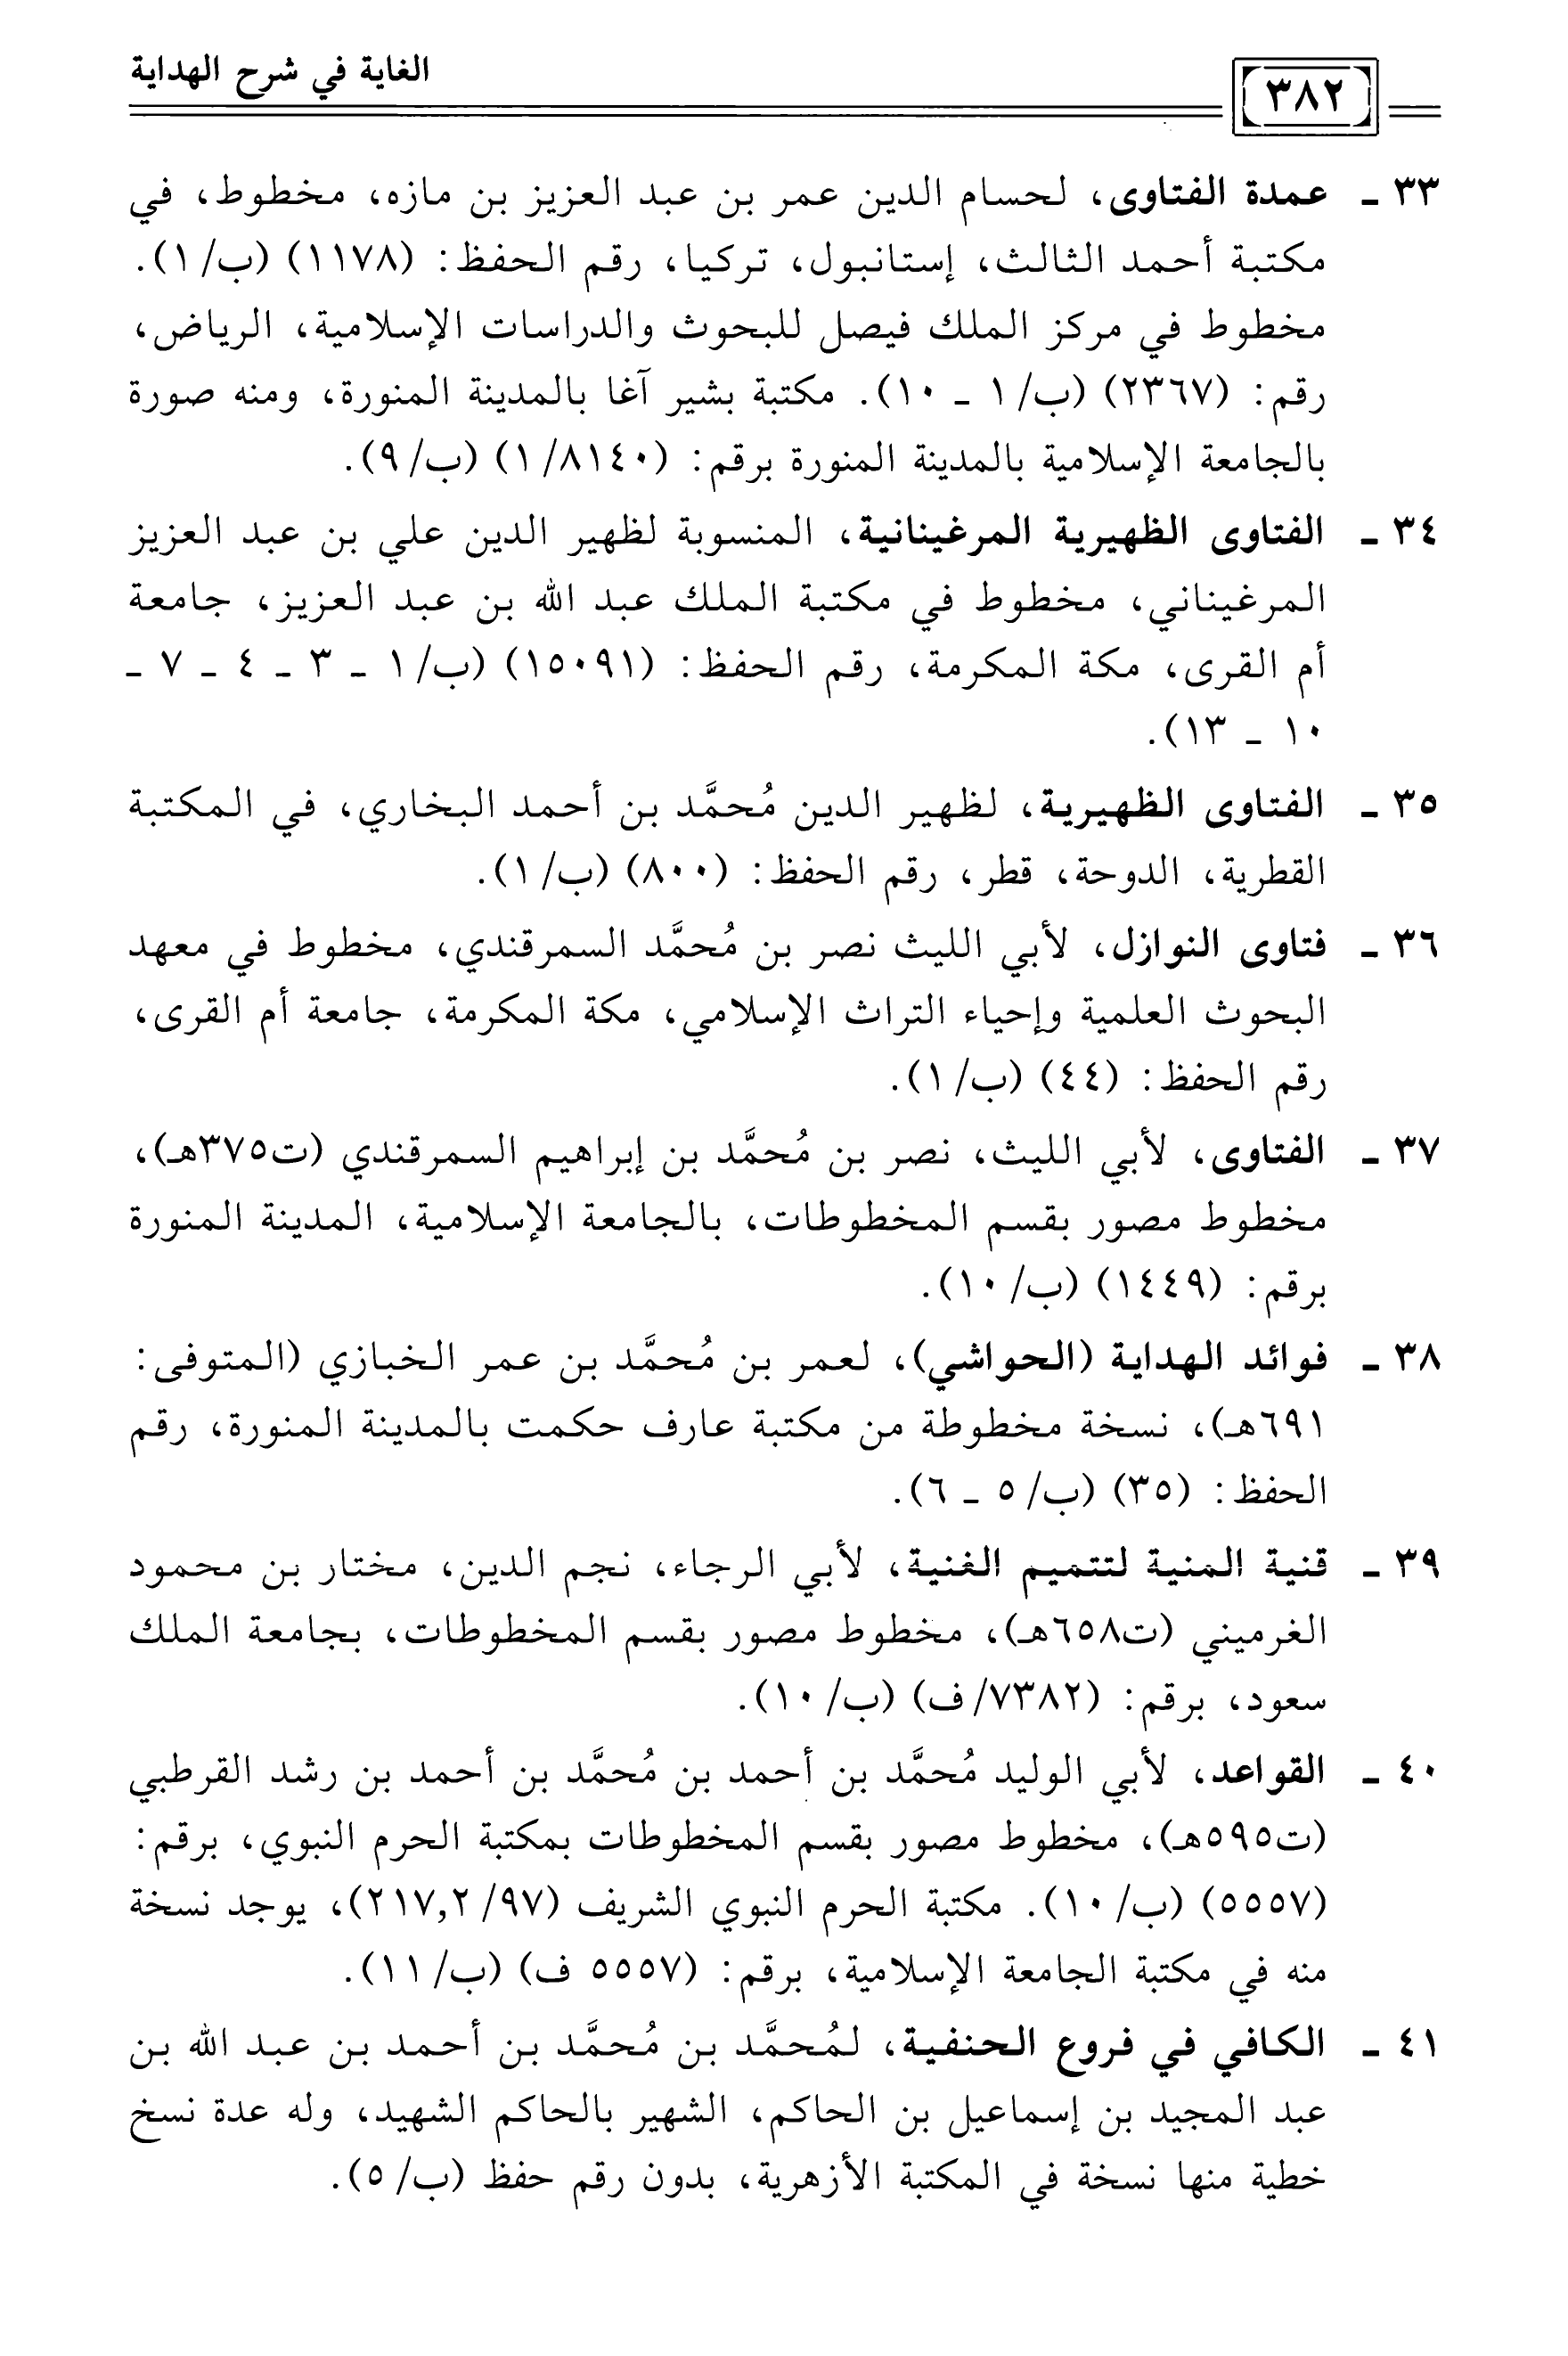 الغاية في شرح الهداية
٣٨٢
٣٣ ـ عمدة الفتاوى، لحسام الدين عمر بن عبد العزيز بن مازه، مخطوط، في
مكتبة أحمد الثالث، إستانبول، تركيا، رقم الحفظ: (١١٧٨) (ب/١).
مخطوط في مركز الملك فيصل للبحوث والدراسات الإسلامية، الرياض،
رقم: (٢٣٦٧) (ب/١ ـ ١٠). مكتبة بشير آغا بالمدينة المنورة، ومنه صورة
بالجامعة الإسلامية بالمدينة المنورة برقم: (١/٨١٤٠) (ب/٩).
٣٤ ـ الفتاوى الظهيرية المرغينانية، المنسوبة لظهير الدين علي بن عبد العزيز
المرغيناني، مخطوط في مكتبة الملك عبد الله بن عبد العزيز، جامعة
أم القرى، مكة المكرمة، رقم الحفظ: (١٥٠٩١) (ب/١ ـ ٣ ـ ٤ ـ ٧ ـ
١٠ ـ ١٣).
٣٥ ـ الفتاوى الظهيرية، لظهير الدين مُحمَّد بن أحمد البخاري، في المكتبة
القطرية، الدوحة، قطر، رقم الحفظ: (٨٠٠) (ب/١).
٣٦ ـ فتاوى النوازل، لأبي الليث نصر بن مُحمَّد السمرقندي، مخطوط في معهد
البحوث العلمية وإحياء التراث الإسلامي، مكة المكرمة، جامعة أم القرى،
رقم الحفظ: (٤٤) (ب/١).
٣٧ ـ الفتاوى، لأبي الليث، نصر بن مُحمَّد بن إبراهيم السمرقندي (ت٣٧٥هـ)،
مخطوط مصور بقسم المخطوطات، بالجامعة الإسلامية، المدينة المنورة
برقم: (١٤٤٩) (ب/١٠).
٣٨ ـ فوائد الهداية (الحواشي)، لعمر بن مُحمَّد بن عمر الخبازي (المتوفى:
٦٩١هـ)، نسخة مخطوطة من مكتبة عارف حكمت بالمدينة المنورة، رقم
الحفظ: (٣٥) (ب/٥ ـ ٦).
٣٩ ـ قنية المنية لتتميم الغنية، لأبي الرجاء، نجم الدين، مختار بن محمود
الغرميني (ت٦٥٨هـ)، مخطوط مصور بقسم المخطوطات، بجامعة الملك
سعود، برقم: (٧٣٨٢/ف) (ب/١٠).
٤٠ ـ القواعد، لأبي الوليد مُحمَّد بن أحمد بن مُحمَّد بن أحمد بن رشد القرطبي
(ت٥٩٥هـ)، مخطوط مصور بقسم المخطوطات بمكتبة الحرم النبوي، برقم:
(٥٥٥٧) (ب/١٠). مكتبة الحرم النبوي الشريف (٢١٧,٢/٩٧)، يوجد نسخة
منه في مكتبة الجامعة الإسلامية، برقم: (٥٥٥٧ ف) (ب/١١).
٤١ ـ الكافي في فروع الحنفية، لمُحمَّد بن مُحمَّد بن أحمد بن عبد الله بن
عبد المجيد بن إسماعيل بن الحاكم، الشهير بالحاكم الشهيد، وله عدة نسخ
خطية منها نسخة في المكتبة الأزهرية، بدون رقم حفظ (ب/٥).